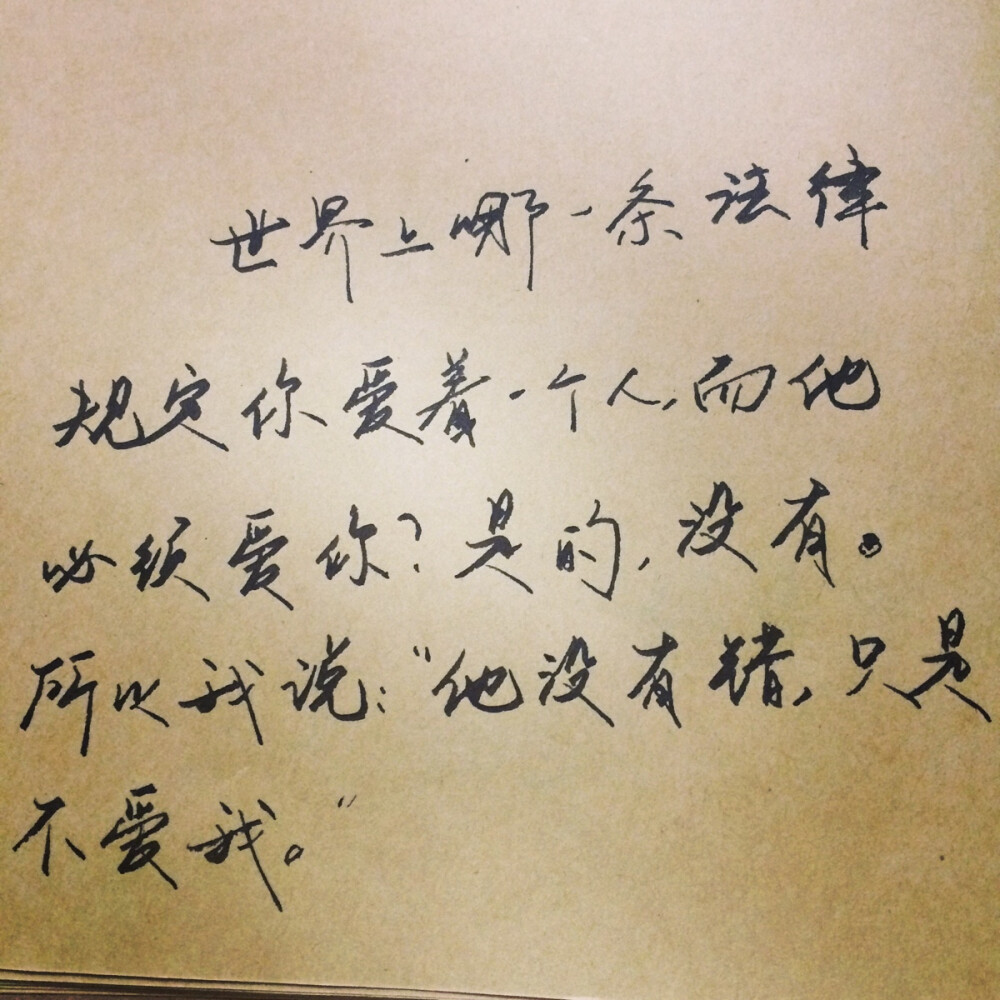 世界上哪一条法律
规定你爱着一个人,而他
必须爱你?是的,没有。
所以我说:“他没有错,只是
不爱我。”